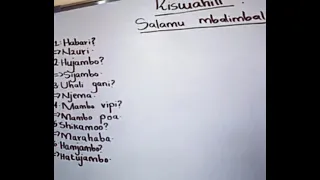 Kiswahili.
Salamu mbalimbal
1 Habari?
⇒Nzuri.
2 Hujambo?
⇒Sijambo.
3 Uhali gani?
⇒Njema.
4 Mambo vipi?
⇒Mambo poa.
5 Shikamoo?
⇒Marahaba.
6 Hamjambo?
⇒Hatujambo.